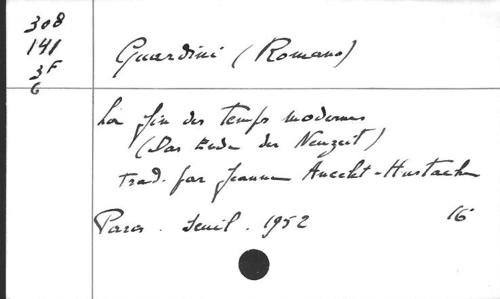 308
141
3F
6
Guardini (Romano)
La fin des temps modernes
(Das Ende der Neuzeit)
Trad. par Jeanne Ancelet-Hustache
Paris. Seuil. 1952 16°